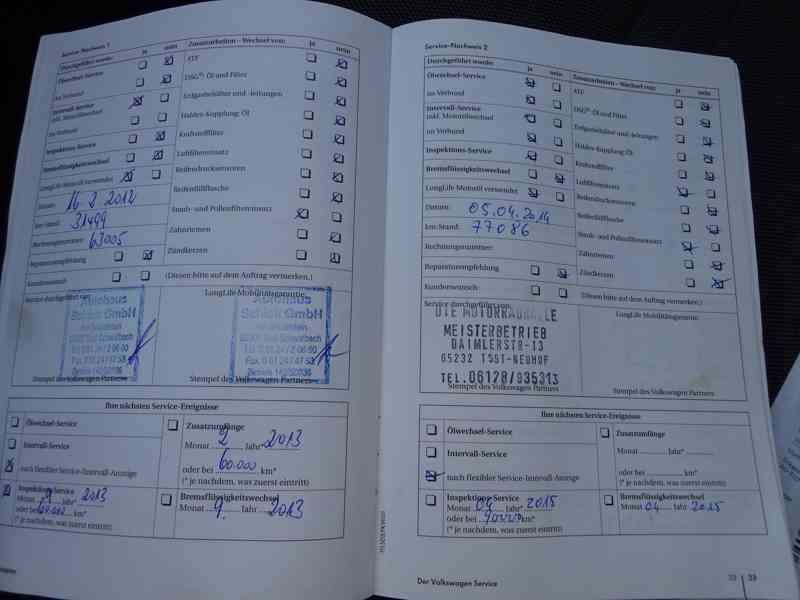 Service-Nachweis 1
Durchgeführt wurde: ja nein
Ölwechsel-Service
im Verbund
Intervall-Service
inkl. Motorölwechsel
im Verbund
Inspektions-Service
Bremsflüssigkeitswechsel
LongLife-Motoröl verwendet
Datum: 16 2 2012
km-Stand: 31499
Rechnungsnummer: 63005
Reparaturempfehlung
Kundenwunsch
Zusatzarbeiten – Wechsel von: ja nein
ATF
DSG®-Öl und Filter
Erdgasbehälter und -leitungen
Haldex-Kupplung: Öl
Kraftstofffilter
Luftfiltereinsatz
Reifendrucksensoren
Reifenfüllflasche
Staub- und Pollenfiltereinsatz
Zahnriemen
Zündkerzen
(Diesen bitte auf dem Auftrag vermerken.)
Service durchgeführt von:
Autohaus
GmbH
Stempel des Volkswagen Partners
LongLife Mobilitätsgarantie:
Autohaus
GmbH
Stempel des Volkswagen Partners
Ihre nächsten Service-Ereignisse
Ölwechsel-Service
Intervall-Service
nach flexibler Service-Intervall-Anzeige
Inspektions-Service
Monat 9 Jahr* 2013
oder bei km*
(* je nachdem, was zuerst eintritt)
Zusatzumfänge
Monat 2 Jahr* 2013
oder bei 60.000 km*
(* je nachdem, was zuerst eintritt)
Bremsflüssigkeitswechsel
Monat 9. Jahr 2013
Service-Nachweis 2
Durchgeführt wurde: ja nein
Ölwechsel-Service
im Verbund
Intervall-Service
inkl. Motorölwechsel
im Verbund
Inspektions-Service
Bremsflüssigkeitswechsel
LongLife-Motoröl verwendet
Datum: 05.04.2014
km-Stand: 77086
Rechnungsnummer:
Reparaturempfehlung
Kundenwunsch
Zusatzarbeiten – Wechsel von: ja nein
ATF
DSG®-Öl und Filter
Erdgasbehälter und -leitungen
Haldex-Kupplung: Öl
Kraftstofffilter
Luftfiltereinsatz
Reifendrucksensoren
Reifenfüllflasche
Staub- und Pollenfiltereinsatz
Zahnriemen
Zündkerzen
(Diesen bitte auf dem Auftrag vermerken.)
Service durchgeführt von:
DIE MOTORRADHALLE
MEISTERBETRIEB
DAIMLERSTR-13
65232 TSST-NEUHOF
TEL.06128/935313
Stempel des Volkswagen Partners
LongLife Mobilitätsgarantie:
Stempel des Volkswagen Partners
Ihre nächsten Service-Ereignisse
Ölwechsel-Service
Intervall-Service
nach flexibler Service-Intervall-Anzeige
Inspektions-Service
Monat 04 Jahr* 2015
oder bei km*
(* je nachdem, was zuerst eintritt)
Zusatzumfänge
Monat Jahr*
oder bei km*
(* je nachdem, was zuerst eintritt)
Bremsflüssigkeitswechsel
Monat 04 Jahr 2015
Der Volkswagen Service
33